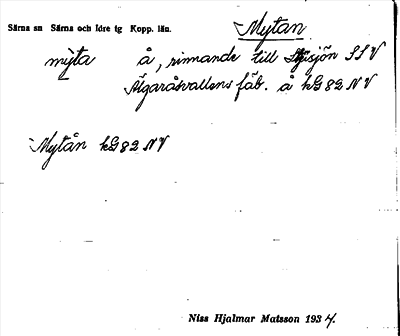 Särna sn Särna och Idre tg Kopp. län.
Mytan
mỳta å, rinnande till sjön SSV
Älgaråsvallens fäb. å kG 82 NV
Mytån kG 82 NV
Niss Hjalmar Matsson 1934.